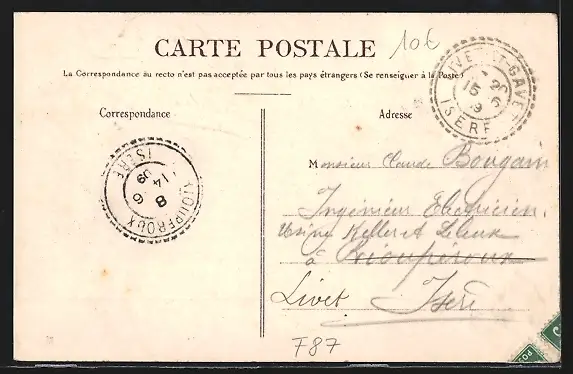 CARTE POSTALE
10€
La Correspondance au recto n'est pas acceptée par tous les pays étrangers (Se renseigner à la Poste)
Correspondance
Adresse
LIVET-ET-GAVET
ISÈRE
RIOUPEROUX
ISÈRE
8
14
6
09
Monsieur Claude Bougain
Ingénieur Electricien
Usine Keller et Leleux
à Rioupéroux
Livet Isère
F87